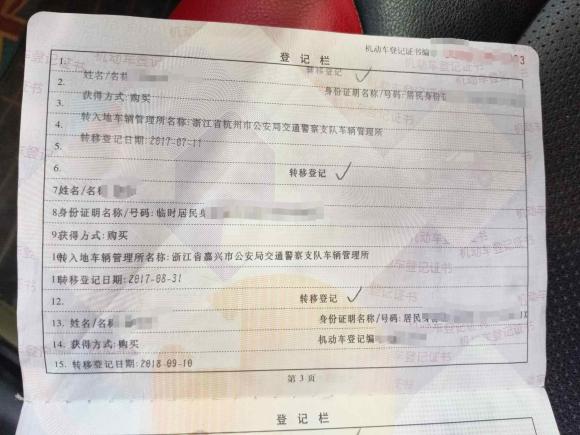 机动车登记证书编
3
登记栏
1. 转移登记
2. 姓名/名称 身份证明名称/号码:居民身份
3. 获得方式:购买
4. 转入地车辆管理所名称:浙江省杭州市公安局交通警察支队车辆管理所
5. 转移登记日期:2017-07-11
6. 转移登记
7姓名/名称
8身份证明名称/号码:临时居民身
9获得方式:购买
10转入地车辆管理所名称:浙江省嘉兴市公安局交通警察支队车辆管理所
11转移登记日期:2017-08-31
12. 转移登记
13. 姓名/名称 身份证明名称/号码:居民
14. 获得方式:购买 机动车登记编
15. 转移登记日期:2018-09-10
第3页
登记栏